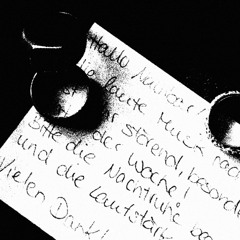 Hallo Nachbar!
die laute Musik nach
störend, besond
der Woche!
Bitte die Nachtruhe be
und die Lautstärk
Vielen Dank!